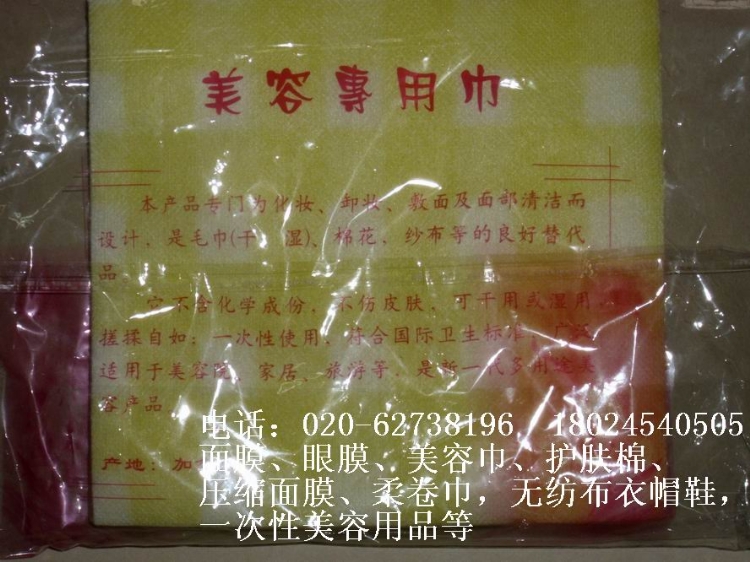 美容專用巾
本产品专门为化妆、卸妆、敷面及面部清洁而
设计，是毛巾(干、湿)、棉花、纱布等的良好替代
品
它不含化学成份，不伤皮肤，可干用或湿用，
搓揉自如；一次性使用，符合国际卫生标准，广泛
适用于美容院、家居、旅游等，是新一代多用途美
容产品
产地：加
电话：020-62738196, 18024540505
面膜、眼膜、美容巾、护肤棉、
压缩面膜、柔卷巾，无纺布衣帽鞋，
一次性美容用品等